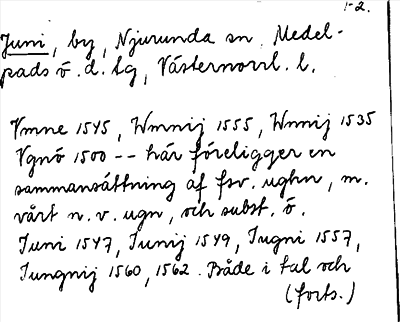 1-2.
Juni, by, Njurunda sn. Medel-
pads ö. d. lg, Västernorrl. l.
Vmne 1545, Wmnij 1555, Wnnij 1535
Vgnö 1500 -- här föreligger en
sammansättning af fsv. ughn, m.
vårt n. v. ugn, och subst. ö.
Juni 1547, Junij 1549, Jugni 1557,
Jungnij 1560, 1562. Både i tal och
(forts.)